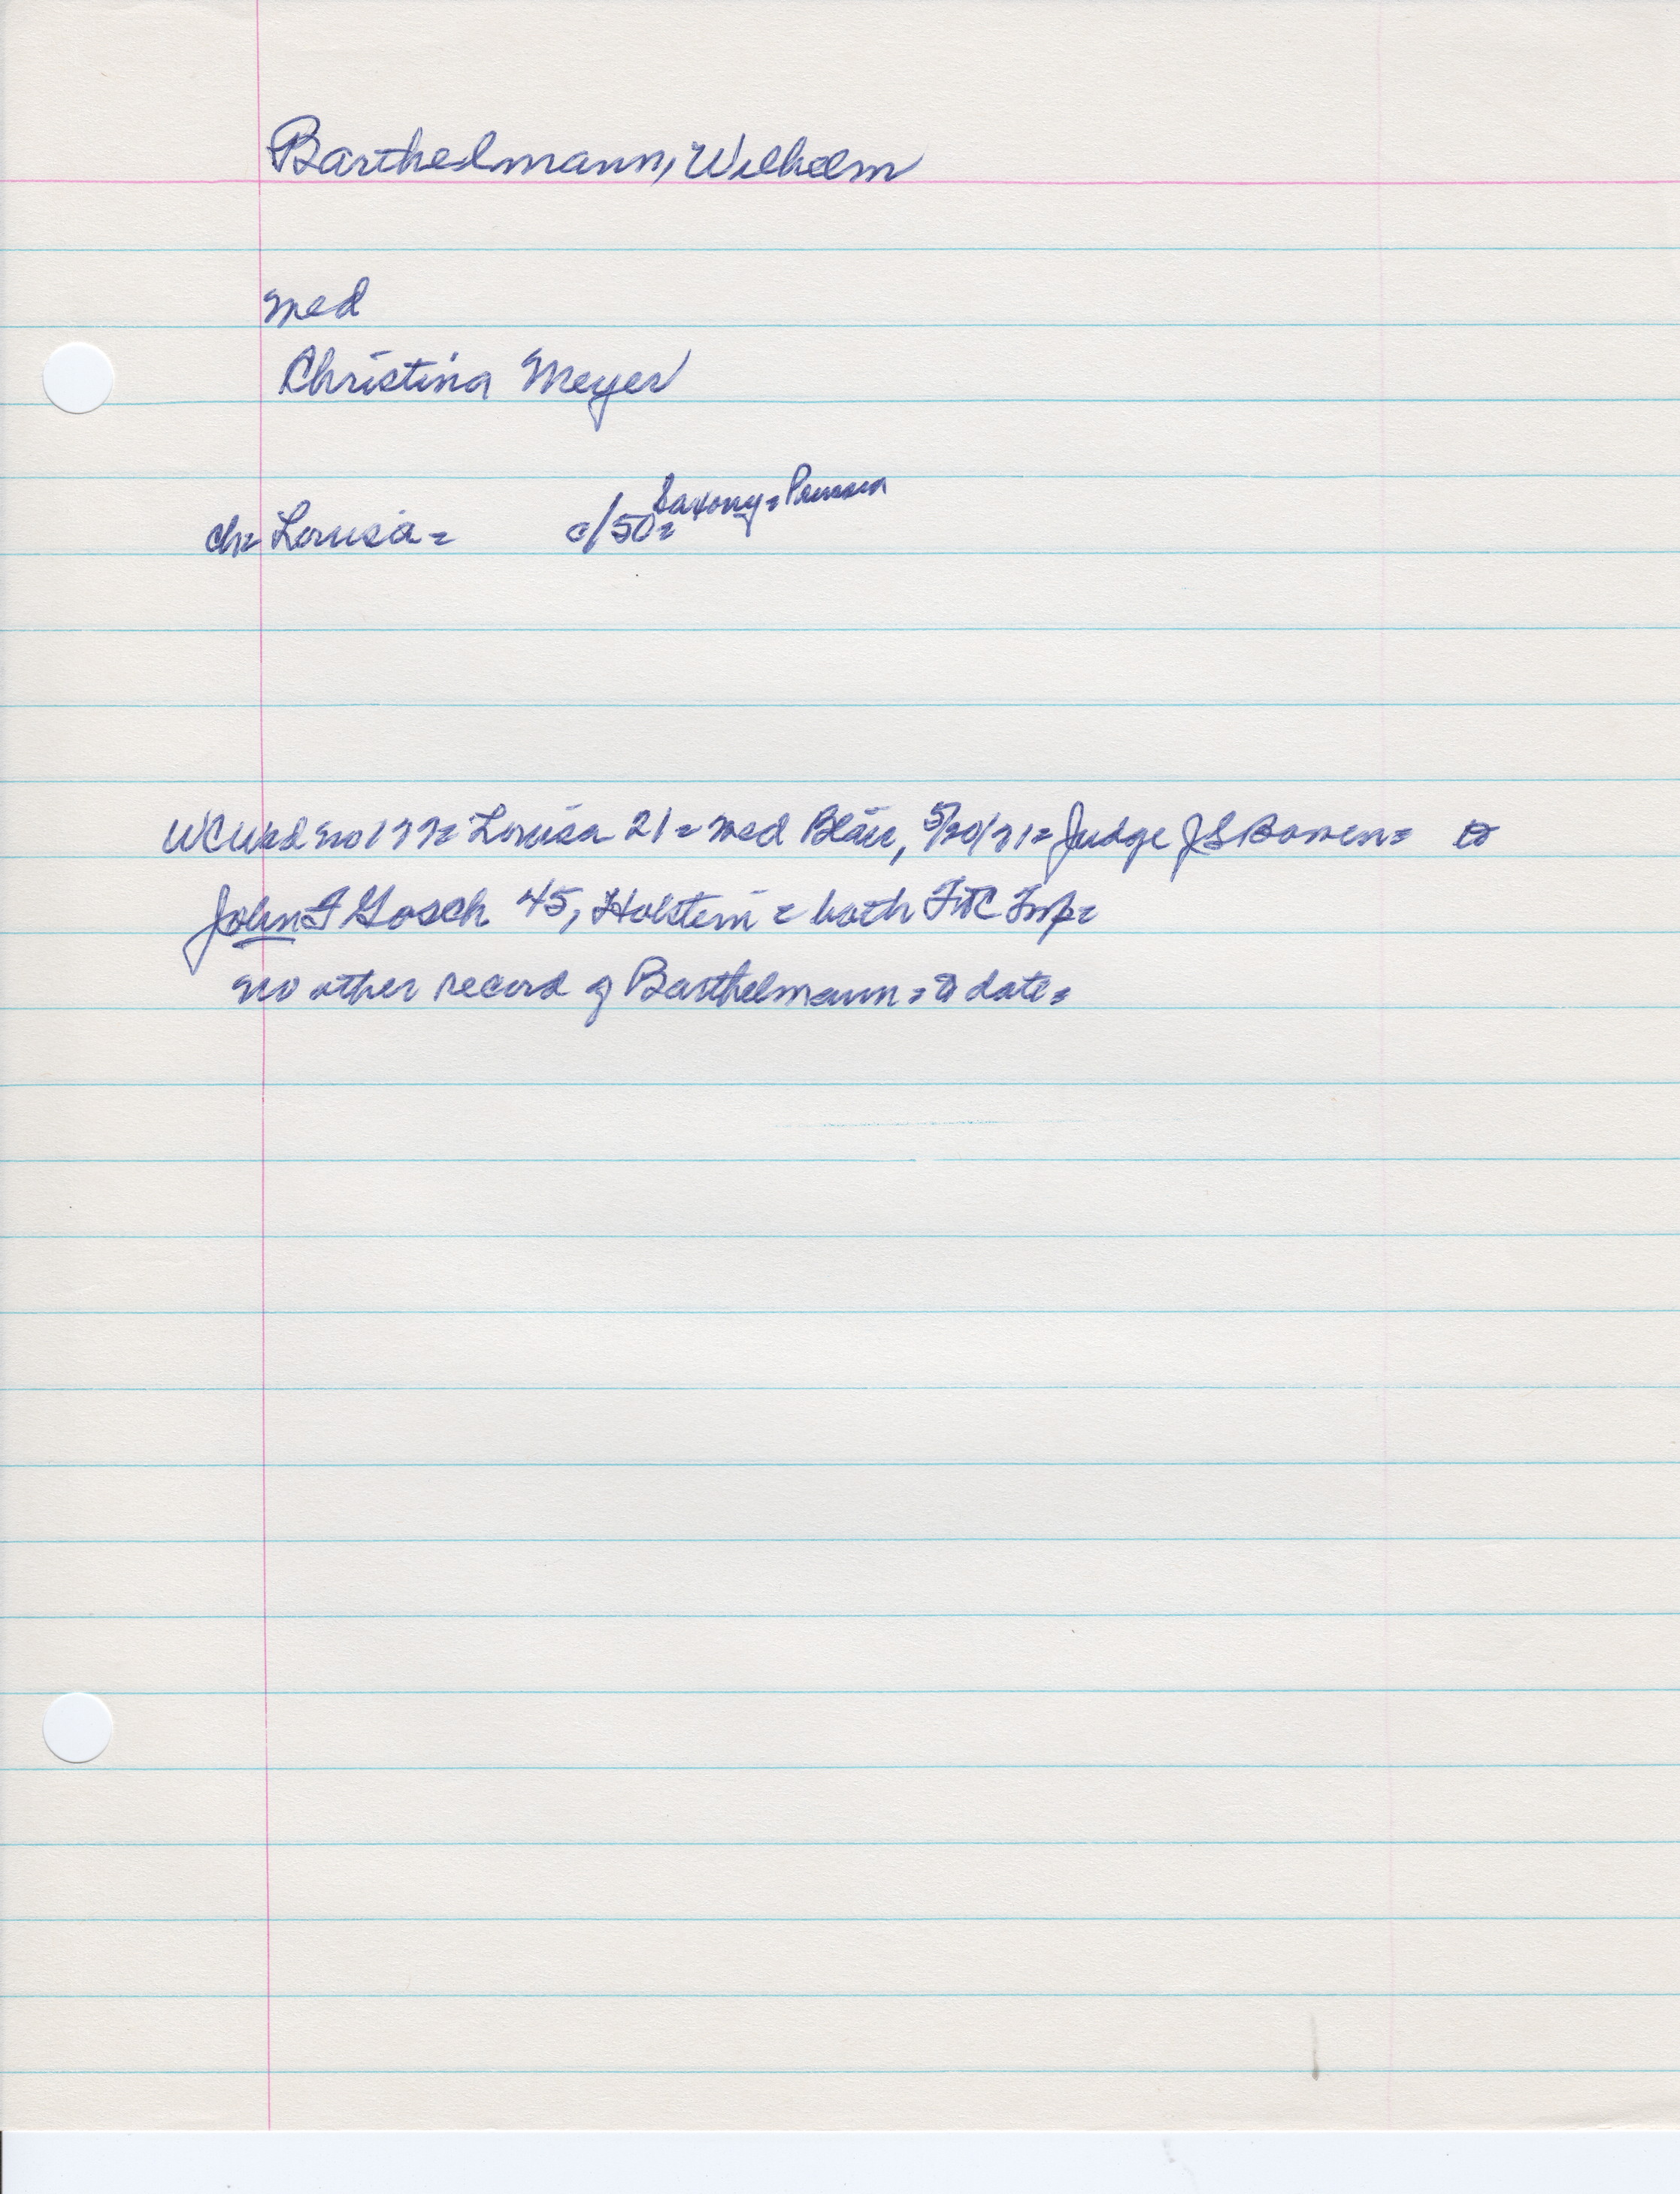 Barthelmann, Wilhelm
med
Christina Meyer
Saxony = Prussia
ch= Louisa = c/50=
WC Wed no 177= Louisa 21 = med Blair, 5/20/71= Judge J S Bowen= to
John F Gosch 45, Holstein = both FtC Twp=
no other record of Barthelmann = to date =